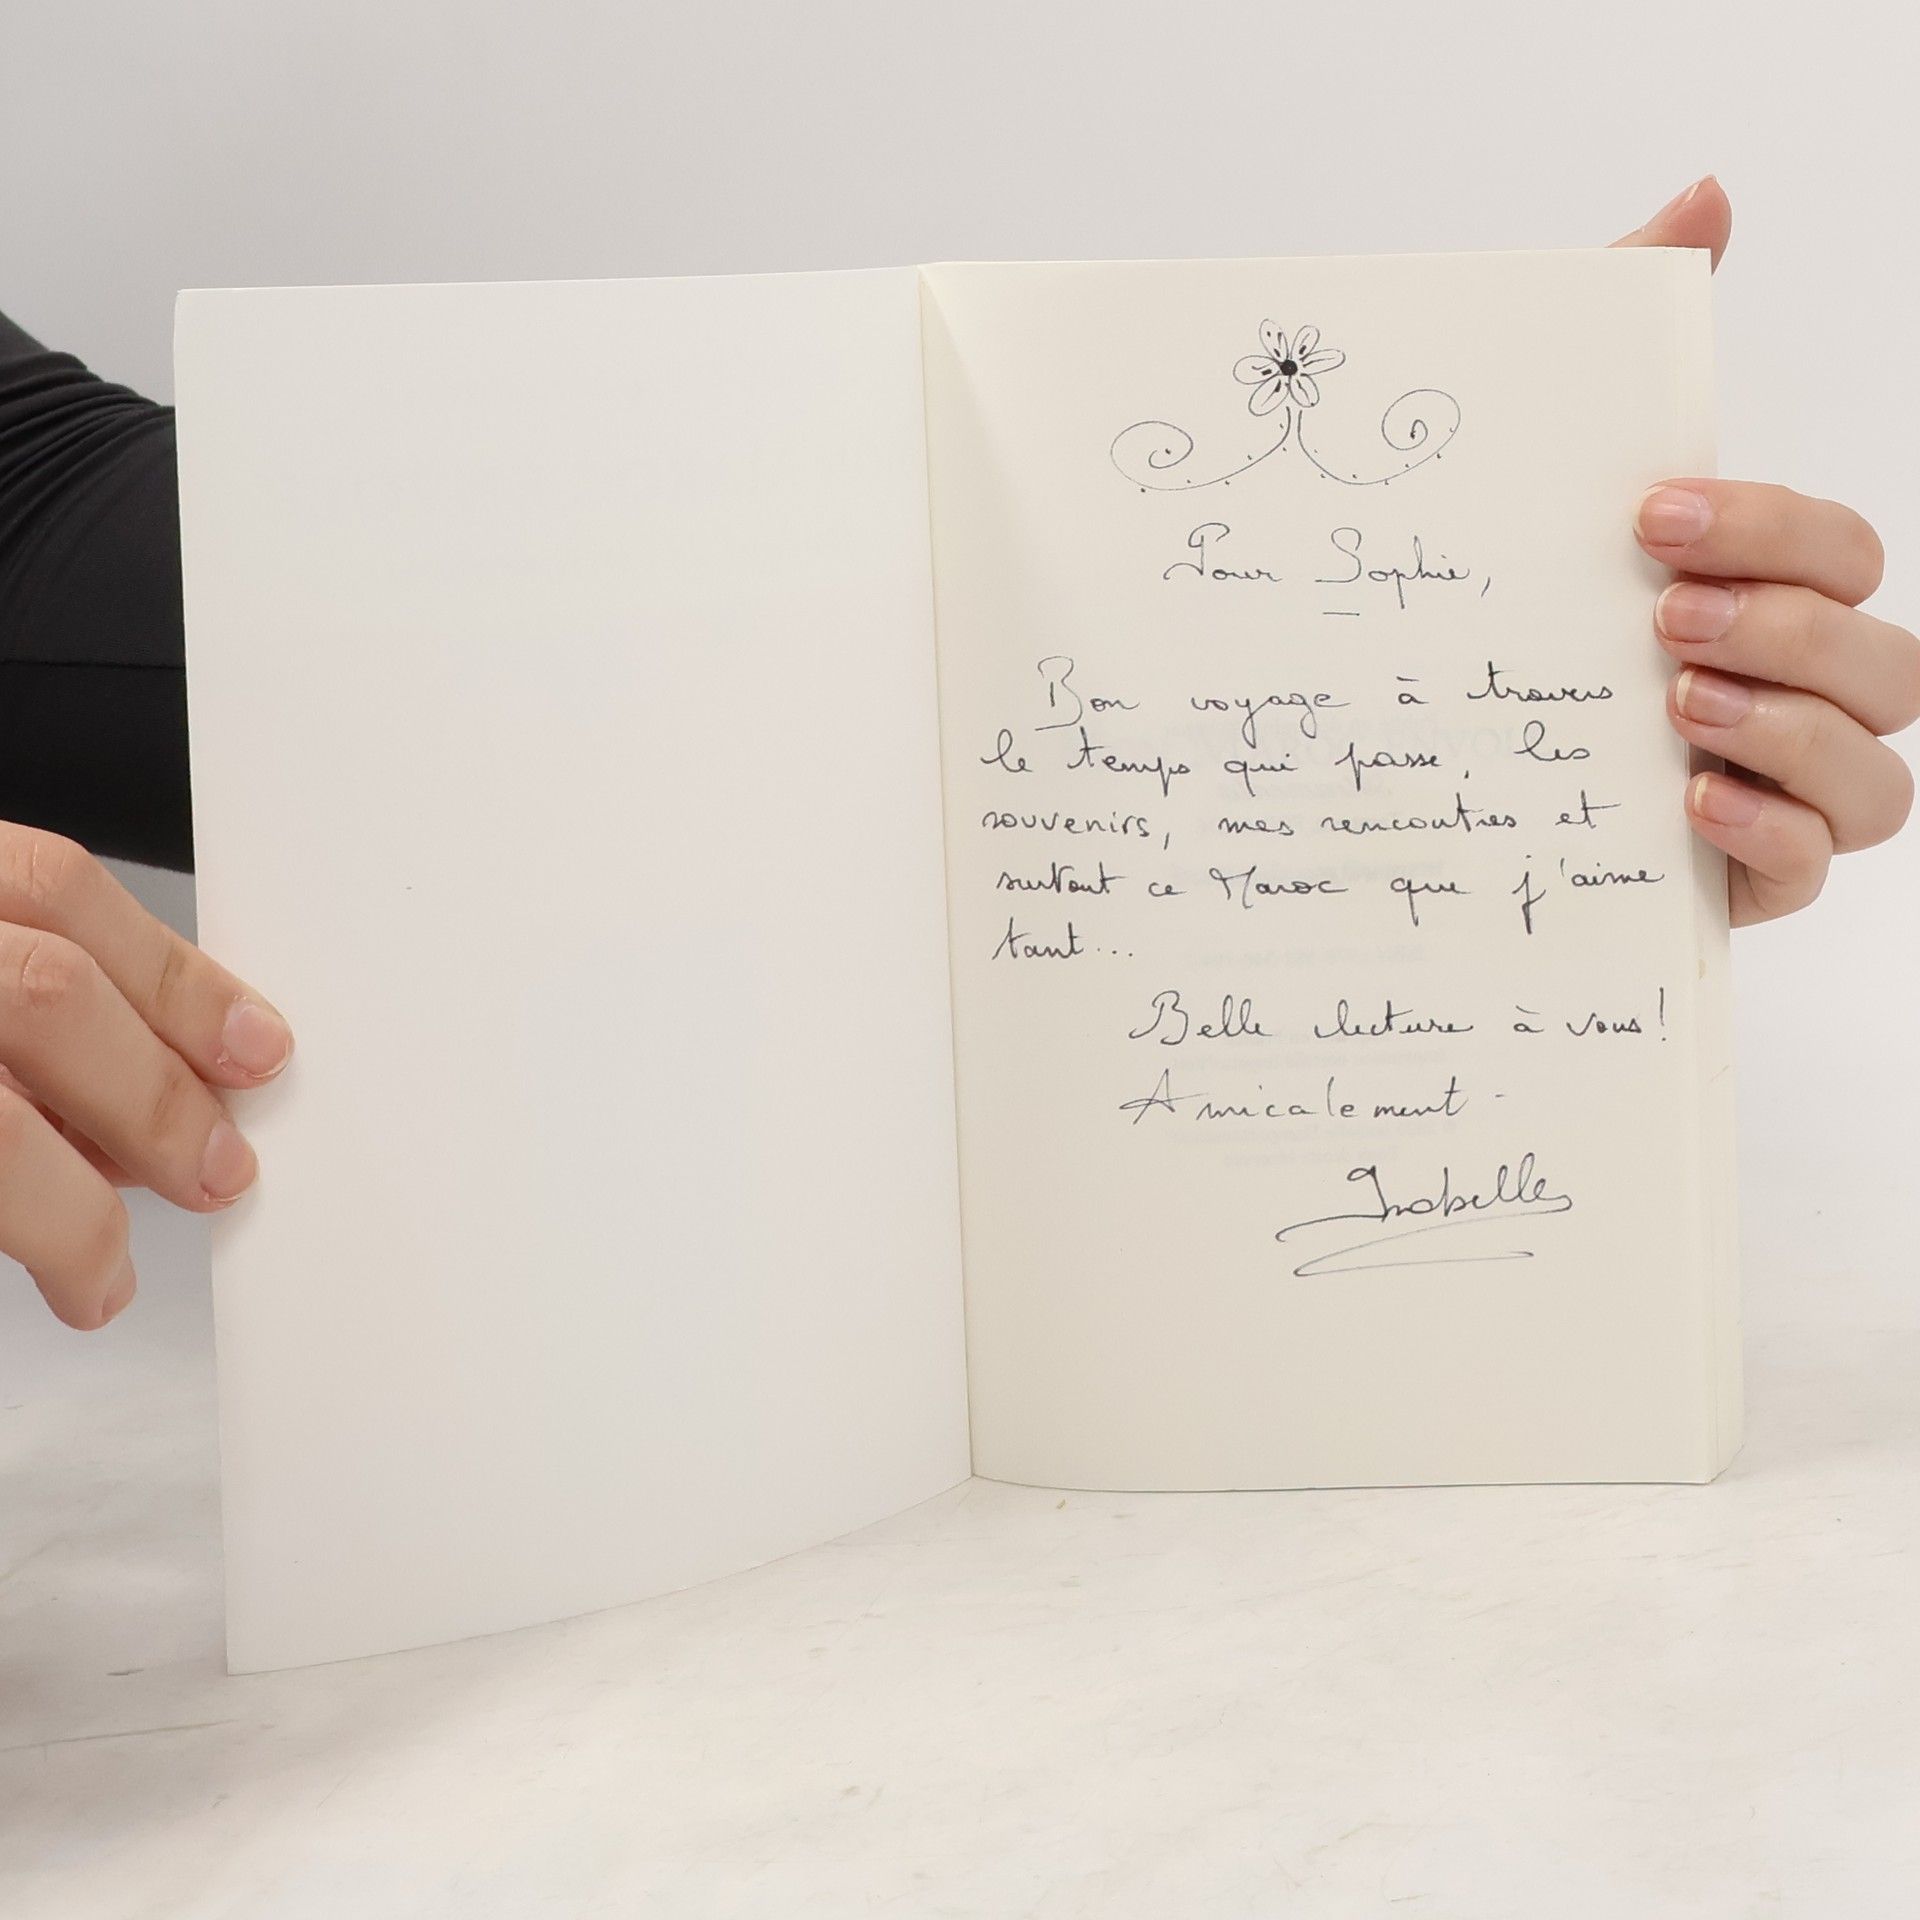 Pour Sophie,
Bon voyage à travers
le temps qui passe, les
souvenirs, mes rencontres et
surtout ce Maroc que j'aime
tant...
Belle lecture à vous!
Amicalement -
Isabelle